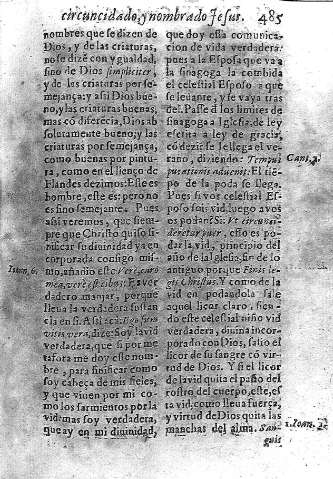 circuncidado, y nombrado Jesus. 485
nombres que se dizen de
Dios, y de las criaturas,
no se dizē con ygualdad,
sino de Dios simpliciter,
y de las criaturas por se-
mejança: y assi Dios bue-
no, y las criaturas buenas,
mas cō diferēcia, Dios ab
solutamente bueno; y las
criaturas por semejança,
como buenas por pintu-
ra, como en el lienço de
Flandes dezimos: Este es
hombre, este es: pero no
es sino semejante. Pues
assi veremos, que siem-
pre que Christo quiso si-
nificar su diuinidad ya en
corporada consigo mis-
mo, añadio este Vere, caro
mea, vere est cibus: Es ver
dadero manjar, porque
lleua la verdadera sustan
cia en si. Assi acà: Ego sum
vitis vera, dize: Soy la vid
verdadera, que si por me
tafora me doy este nom-
bre, para sinificar como
soy cabeça de mis fieles,
y que viuen por mi co-
mo los sarmientos por la
vid: mas soy verdadera,
que ay en mi diuinidad,
Ioan. 6.
que doy esta comunica-
cion de vida verdadera:
pues a la Esposa que va a
la sinagoga la combida
el celestial Esposo a que
se leuante, y se vaya tras
del. Passe d los limites de
sinagoga a Iglesia, de ley
escrita a ley de gracia,
cō dezir se le llega el ve-
rano, diziendo: Tempus
putationis aduenit: El tiē-
po de la poda se llega.
Pues si vos celestial Es-
poso sois vid, luego a vos
os podan? Si: Vt circunci-
deretur puer, esso es po-
dar la vid, principio del
año de la Iglesia, fin de lo
antiguo porque Finis le-
gis Christus. Y como de la
vid en podandola sale
aquel licor claro, sien-
do este celestial niño vid
verdadera, diuina incor-
porado con Dios, salio el
licor de su sangre cō vir-
tud de Dios. Y si el licor
de la vid quita el paño del
rostro del cuerpo, este, es-
ta vid, como lleua fuerça,
y virtud de Dios quita las
manchas del alma. San-
guis
Cant. 2.
1. Ioan.